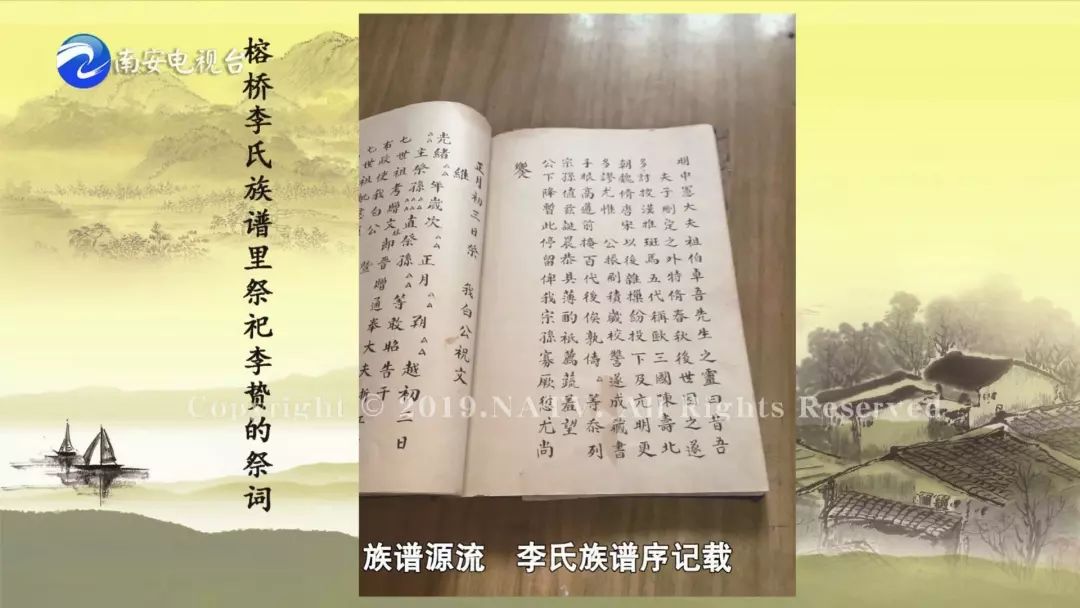 南安电视台
榕桥李氏族谱里祭祀李贽的祭词
明中憲大夫祖伯卓吾先生之靈曰昔吾
夫子刪定之外特脩春秋後世因之遂
多討按漢雅班馬五代稱歐三國陳壽北
朝魏脩唐宋以後雜擢紛投下及亢明更
多謬尤惟公振刷積歲校讐遂成藏書
手眼高邁前掩百代後俟孰儔等忝列
宗孫值茲誕晨恭具薄酌祇薦蔬羞望
公下降暫此停留俾我宗孫寡厥愆尤尚
饗
正月初三日祭 我白公祝文
維
光緒 年歲次 正月 朔 越初三日
主祭孫 直祭孫 等敢昭告于
七世祖考贈文 郎晉贈通奉大夫
布政使我白公 暨
七世祖
Copyright © 2019.NATV. All Rights Reserved
族谱源流 李氏族谱序记载